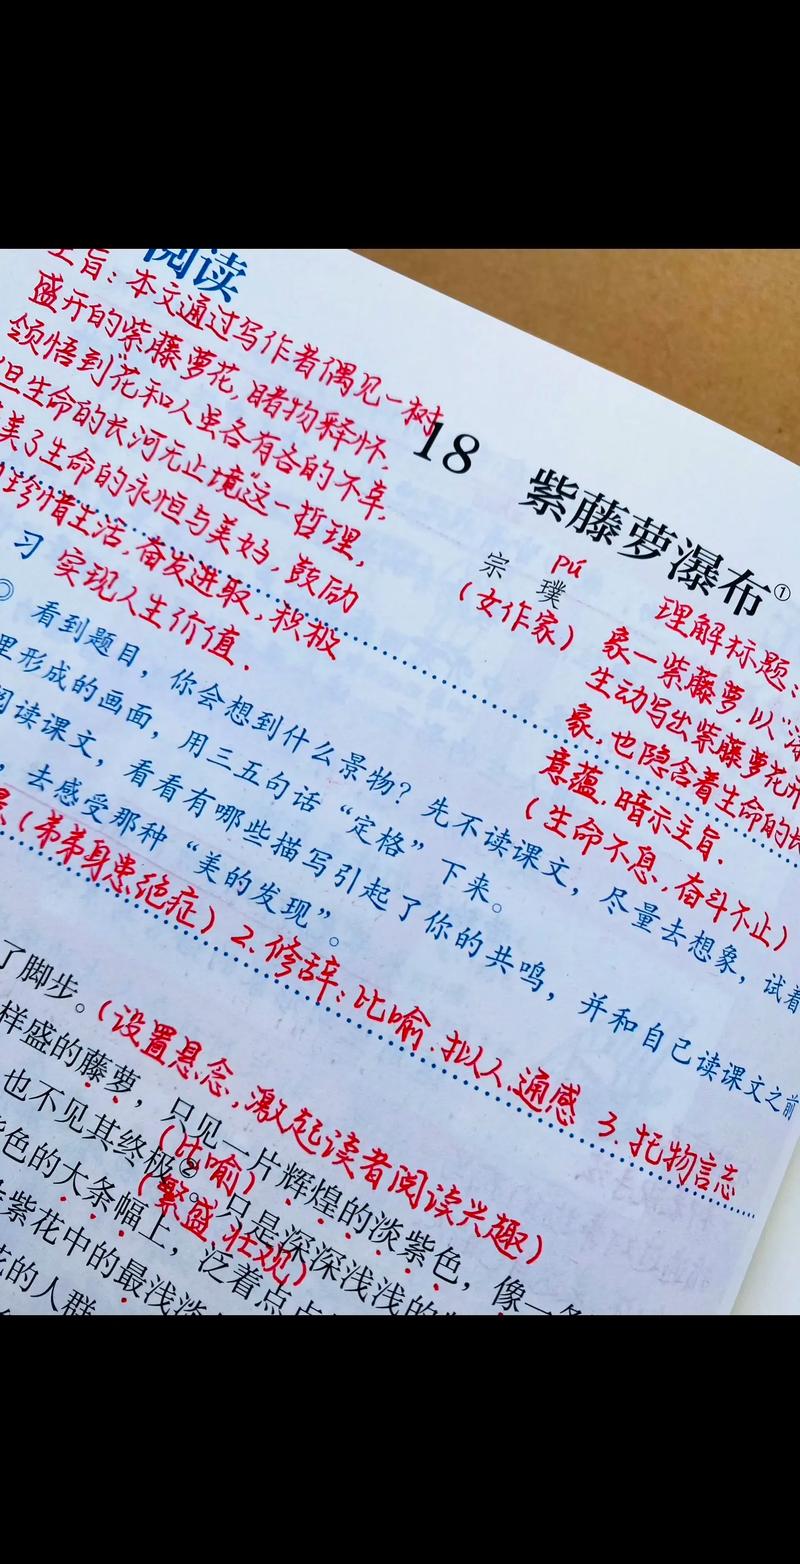 阅读
主旨：本文通过写作者偶见一树
盛开的紫藤萝花，睹物释怀，
领悟到“花和人虽各有各的不幸，
但生命的长河无止境”这一哲理，
美了生命的永恒与美妙，鼓励
珍惜生活，奋发进取，积极
实现人生价值．
18 紫藤萝瀑布①
pú
宗 璞
（女作家）
理解标题：
象一紫藤萝，以“
生动写出紫藤萝花开
象，也隐含着生命的长
意蕴，暗示主旨．
（生命不息，奋斗不止）
习
◎ 看到题目，你会想到什么景物？先不读课文，尽量去想象，试着
里形成的画面，用三五句话“定格”下来。
阅读课文，看看有哪些描写引起了你的共鸣，并和自己读课文之前
，去感受那种“美的发现”。
（弟弟身患绝症）2.修辞：比喻．拟人．通感 3．托物言志
了脚步。（设置悬念，激起读者阅读兴趣）
样盛的藤萝，只见一片辉煌的淡紫色，像一条
（比喻）
也不见其终极②。只是深深浅浅的
（繁盛、壮观）
色的大条幅上，泛着点点
紫花中的最浅淡
花的人群